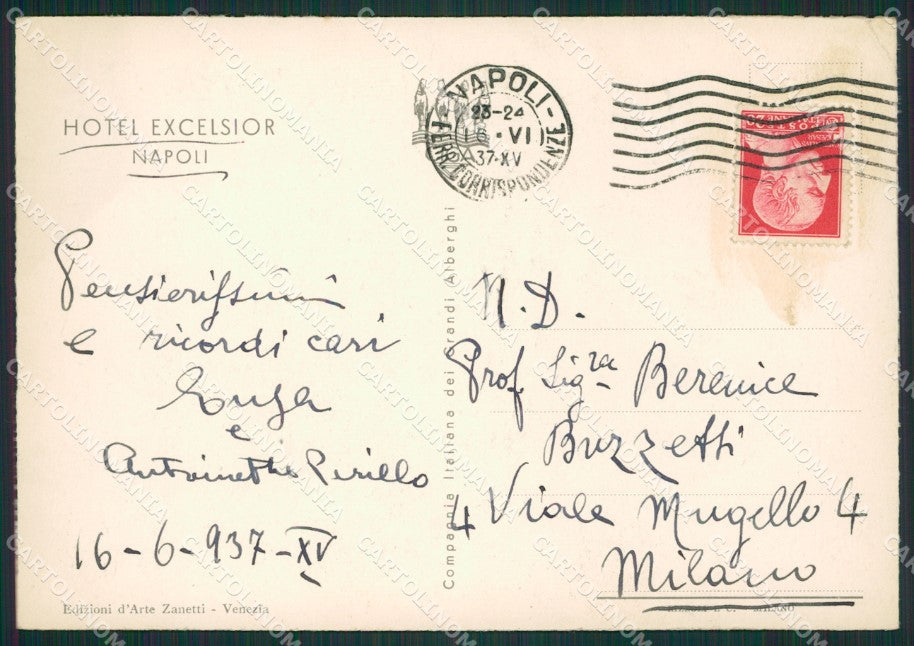 HOTEL EXCELSIOR
NAPOLI
Pensierissimi
e ricordi cari
e
Antoinette Perillo
16-6-937-XV
Edizioni d'Arte Zanetti - Venezia
Compagnia Italiana dei Grandi Alberghi
NAPOLI
23-24
16·VI
37-XV
FERR. CORRISPONDENZE
POSTE
ITALIANE
N.D.
Prof. Sig.ra Berenice
Buzzetti
4 Viale Mugello 4
Milano
CARTOLINOMANIA